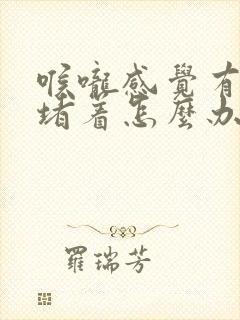 喉嚨感覺有
堵着怎麽办
羅瑞芳